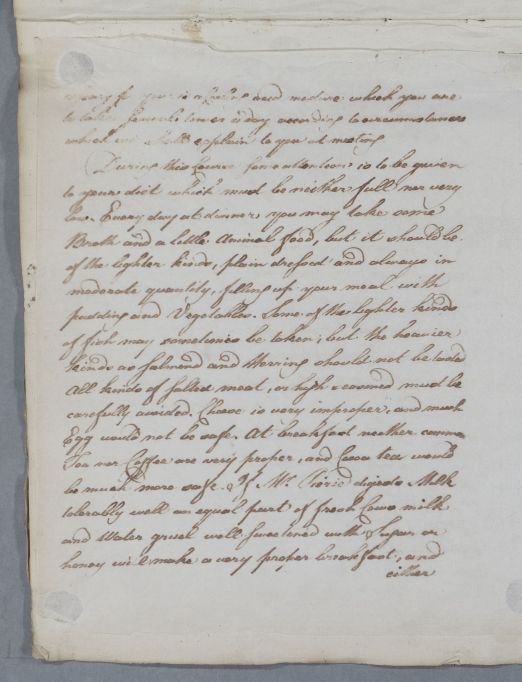 and which you are
to take several times a day according to circumstances
which we shall explain to you at meeting
During this Course some attention is to be given
to your diet which must be neither full nor very
low. Every day at dinner you may take some
Broth and a little Animal food, but it should be
of the lighter kinds, plain dressed and always in
moderate quantity, filling up your meal with
pudding and Vegetables. Some of the lighter kinds
of fish may sometimes be taken; but the heavier
kinds as Salmond and Herring should not be tasted
All kinds of salted meat, or high seasoned must be
carefully avoided. Cheese is very improper, and much
Egg would not be safe. At breakfast neither common
Tea nor Coffee are very proper, and Cocoa tea would
be much more safe. If Mr. digests Milk
tolerably well an equal part of fresh Cows milk
and Water gruel well sweetened with Sugar or
honey will make a very proper breakfast, and
either